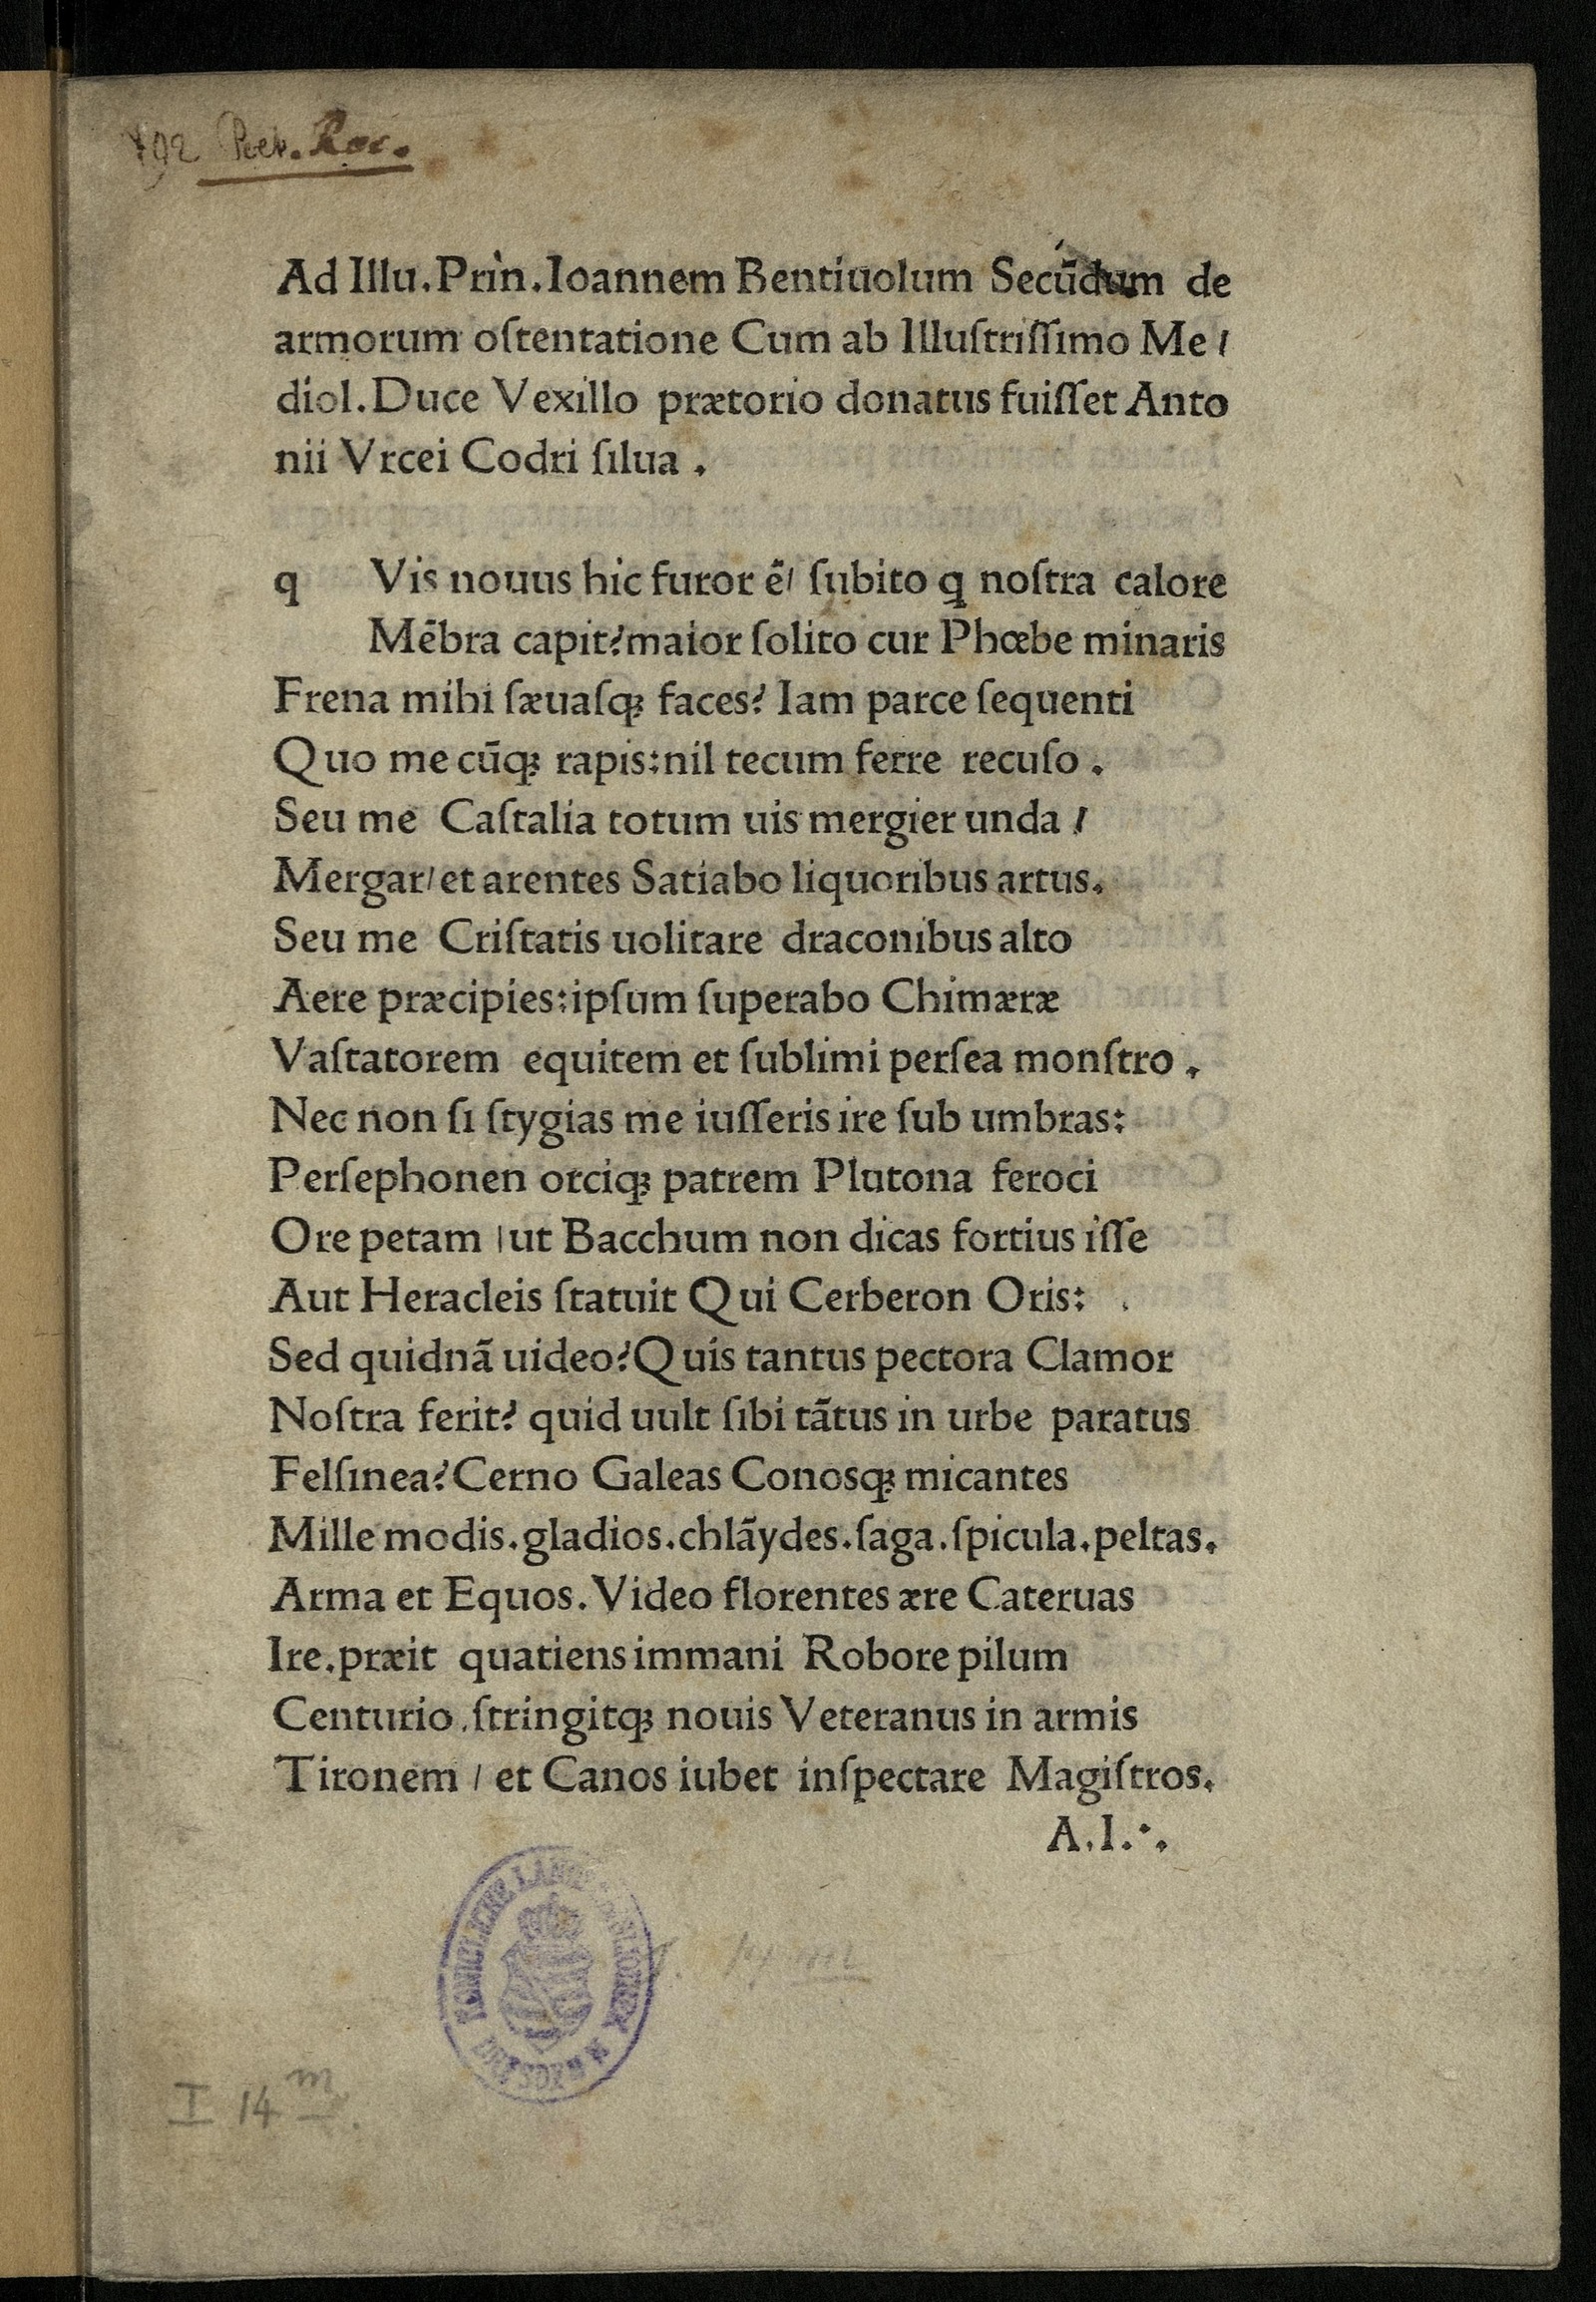 Poet. Rec.
Ad Illu.Prin.Ioannem Bentiuolum Secūdum de
armorum oſtentatione Cum ab Illuſtriſſimo Me/
diol.Duce Vexillo prætorio donatus fuiſſet Anto
nii Vrcei Codri ſilua .
q Vis nouus hic furor ē/ ſubito q noſtra calore
Mēbra capit?maior ſolito cur Phœbe minaris
Frena mihi ſæuaſqꝫ faces? Iam parce ſequenti
Quo me cūqꝫ rapis:nil tecum ferre recuſo .
Seu me Caſtalia totum uis mergier unda /
Mergar/et arentes Satiabo liquoribus artus.
Seu me Criſtatis uolitare draconibus alto
Aere præcipies:ipſum ſuperabo Chimæræ
Vaſtatorem equitem et ſublimi perſea monſtro .
Nec non ſi ſtygias me iuſſeris ire ſub umbras:
Perſephonen orciqꝫ patrem Plutona feroci
Ore petam /ut Bacchum non dicas fortius iſſe
Aut Heracleis ſtatuit Qui Cerberon Oris:
Sed quidnā uideo?Quis tantus pectora Clamor
Noſtra ferit? quid uult ſibi tātus in urbe paratus
Felſinea?Cerno Galeas Conosqꝫ micantes
Mille modis.gladios.chlāydes.ſaga.ſpicula.peltas.
Arma et Equos.Video florentes ære Cateruas
Ire.præit quatiens immani Robore pilum
Centurio.ſtringitqꝫ nouis Veteranus in armis
Tironem / et Canos iubet inſpectare Magiſtros.
A.I.·.
KOENIGLICHE LANDESBIBLIOTHEK
DRESDEN
I 14 m